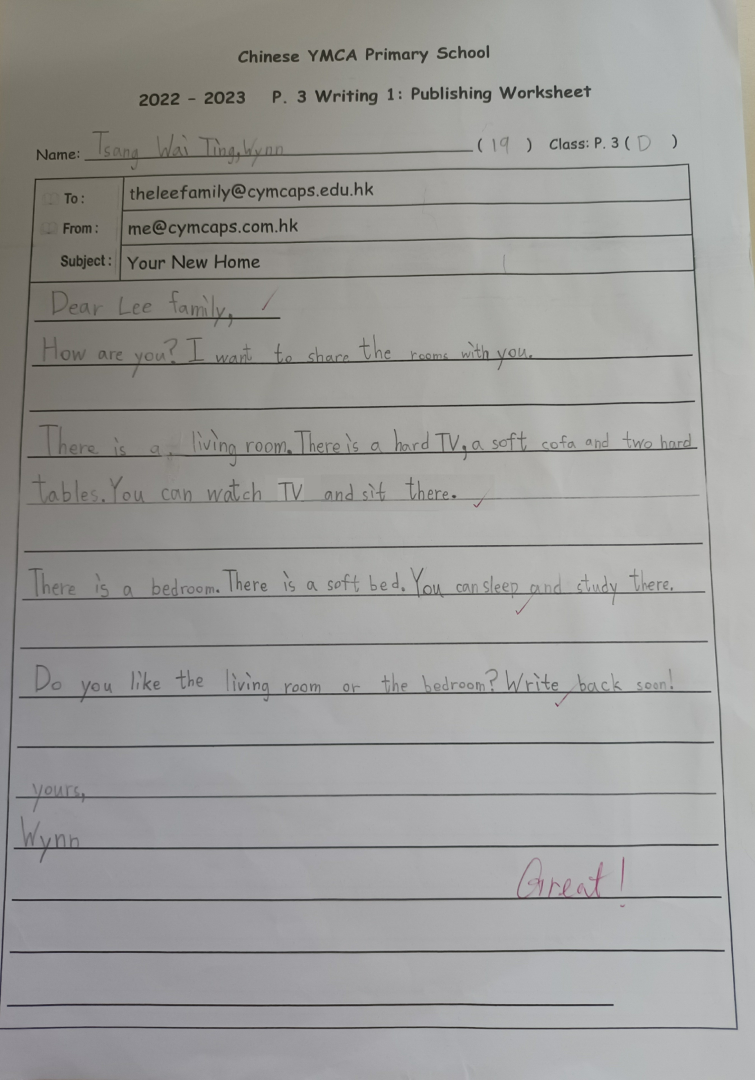 Chinese YMCA Primary School
2022 - 2023 P. 3 Writing 1: Publishing Worksheet
Name: Tsang Wai Ting, Wynn (19) Class: P. 3 (D)
To: theleefamily@cymcaps.edu.hk
From: me@cymcaps.com.hk
Subject: Your New Home
Dear Lee family,
How are you? I want to share the rooms with you.
There is a living room. There is a hard TV, a soft cofa and two hard
tables. You can watch TV and sit there.
There is a bedroom. There is a soft bed. You can sleep and study there.
Do you like the living room or the bedroom? Write back soon!
yours,
Wynn
Great!